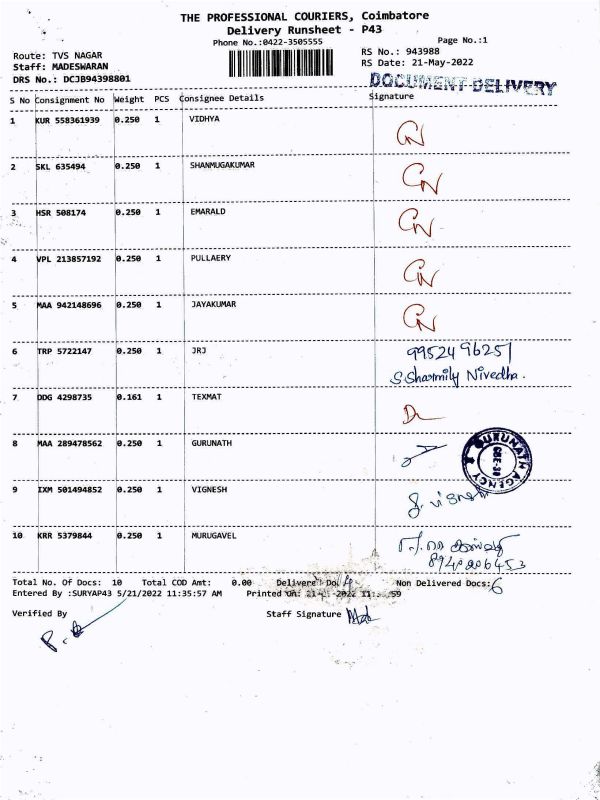 THE PROFESSIONAL COURIERS, Coimbatore
Delivery Runsheet - P43
Phone No.:0422-3505555
Page No.:1
Route: TVS NAGAR
RS No.: 943988
Staff: MADESWARAN
RS Date: 21-May-2022
DRS No.: DCJB94398801
DOCUMENT DELIVERY
S No Consignment No Weight PCS Consignee Details Signature
1 KUR 558361939 0.250 1 VIDHYA
2 SKL 635494 0.250 1 SHANMUGAKUMAR
3 HSR 508174 0.250 1 EMARALD
4 VPL 213857192 0.250 1 PULLAERY
5 MAA 942148696 0.250 1 JAYAKUMAR
6 TRP 5722147 0.250 1 JRJ 9952496251
S Sharmily Nivedha.
7 DDG 4298735 0.161 1 TEXMAT
8 MAA 289478562 0.250 1 GURUNATH
GURUNATH AGENCY CBE-30
9 IXM 501494852 0.250 1 VIGNESH
10 KRR 5379844 0.250 1 MURUGAVEL
Total No. Of Docs: 10 Total COD Amt: 0.00 Delivered Do 4 Non Delivered Docs: 6
Entered By :SURYAP43 5/21/2022 11:35:57 AM Printed On:
Verified By Staff Signature